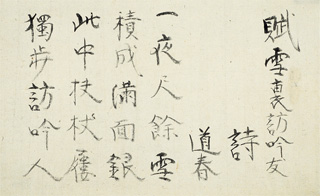 賦雪裏訪吟友
詩
道春
一夜尺餘雪
積成滿面銀
此中扶杖屨
獨步訪吟人